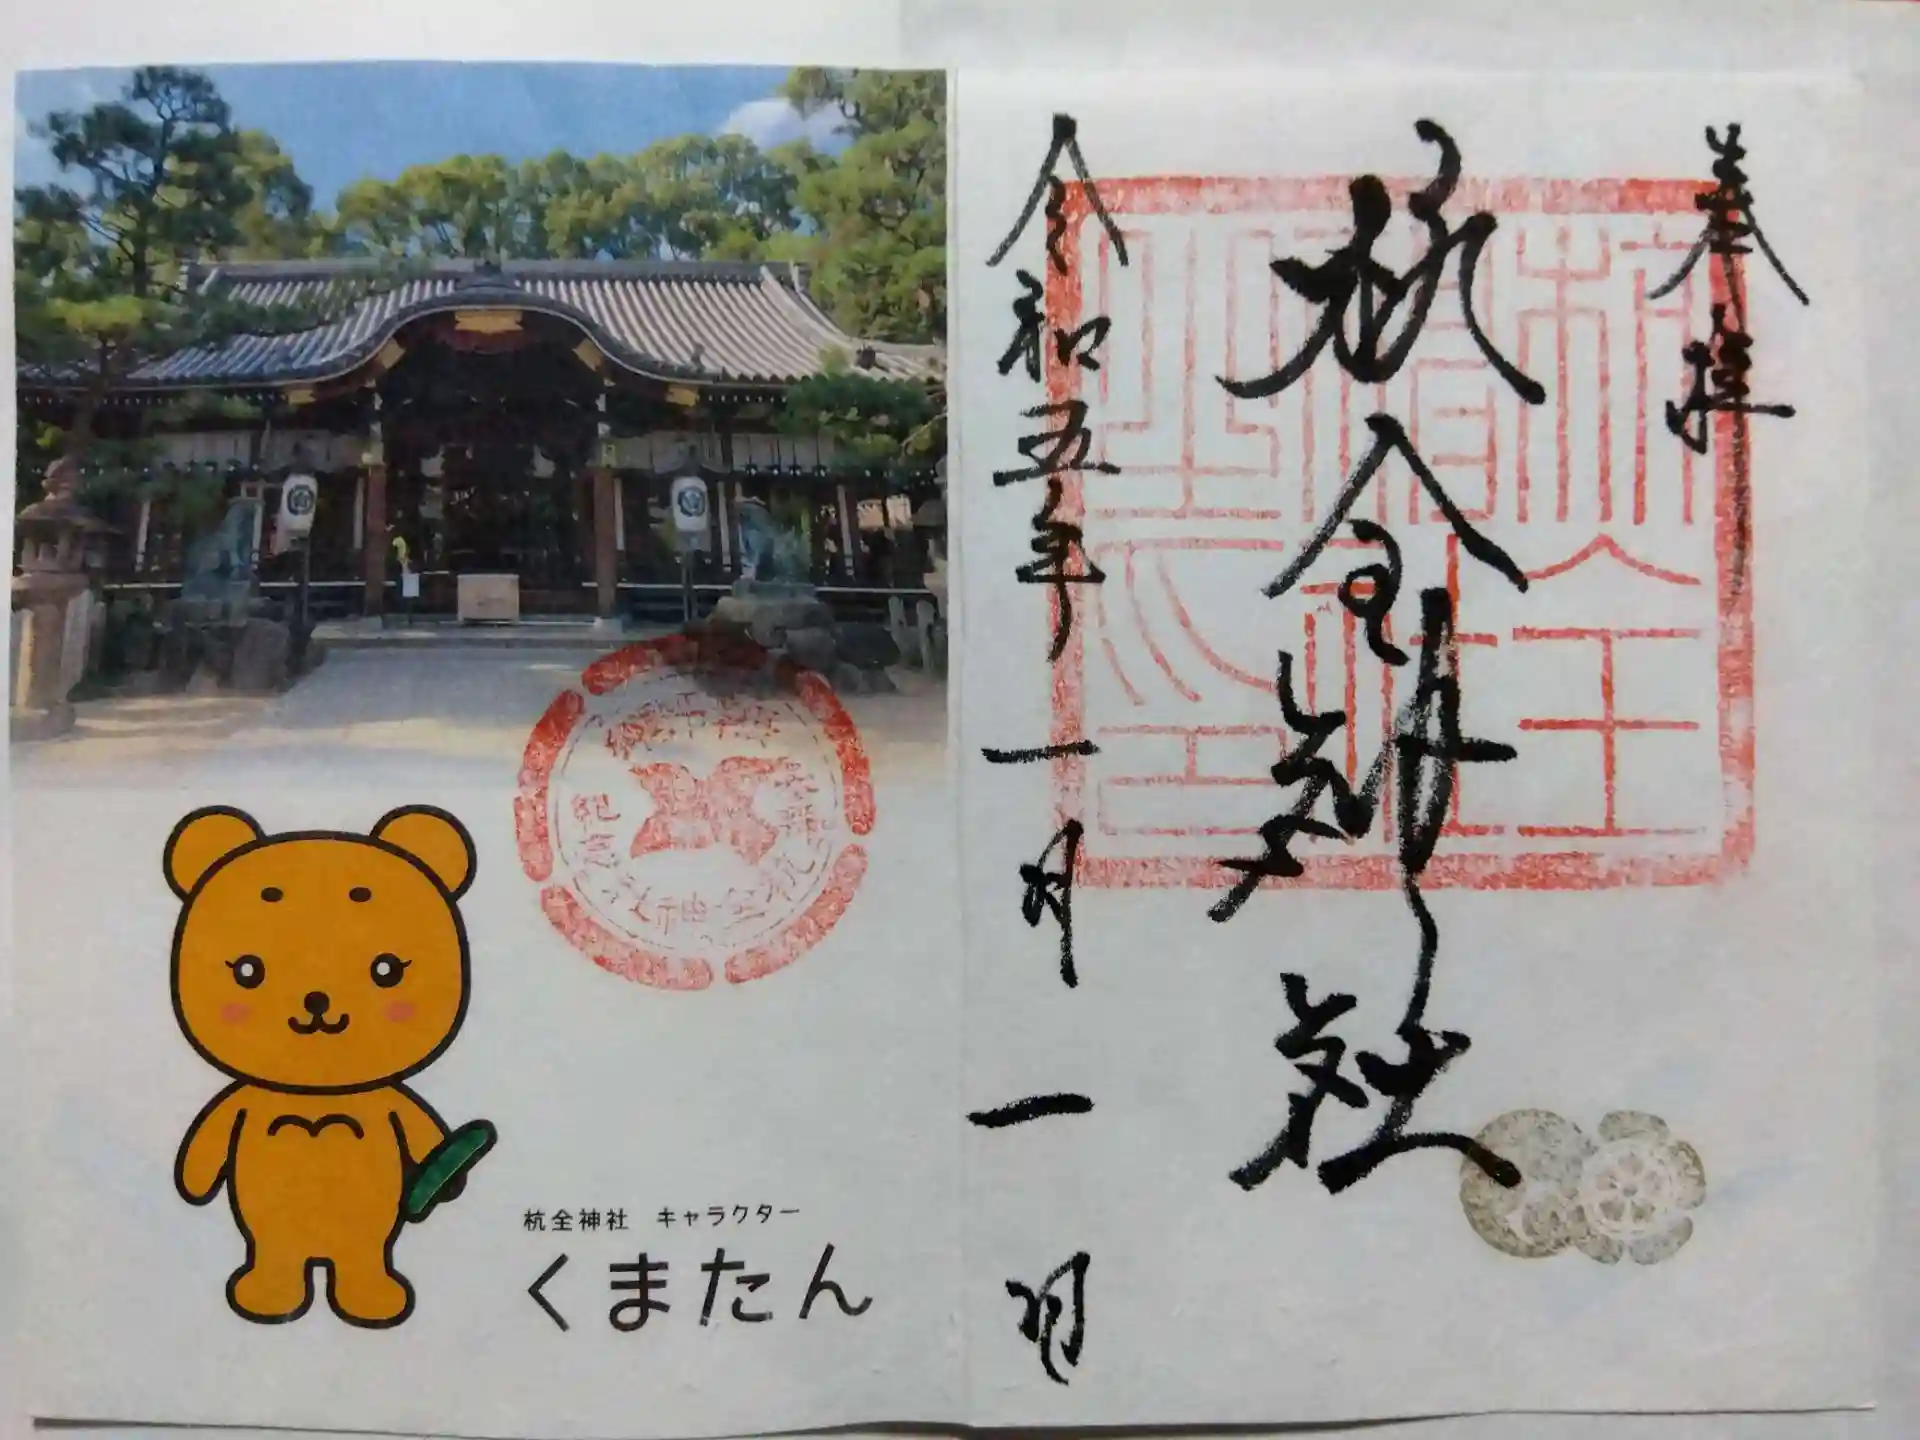 奉拝
杭全神社
令和五年一月一日
杭全神社 キャラクター
くまたん
杭全神社
紀念